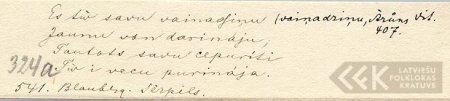 Es tŵ savu vainadziņu (vainadziņu, Krūm Vit.
Jaunu van darināju; 407.
Tautets savu cepurīti
324a Tŵ i vecu purināja.
541. Blauberg. Terpils.
LATVIEŠU
FOLKLORAS
KRĀTUVE